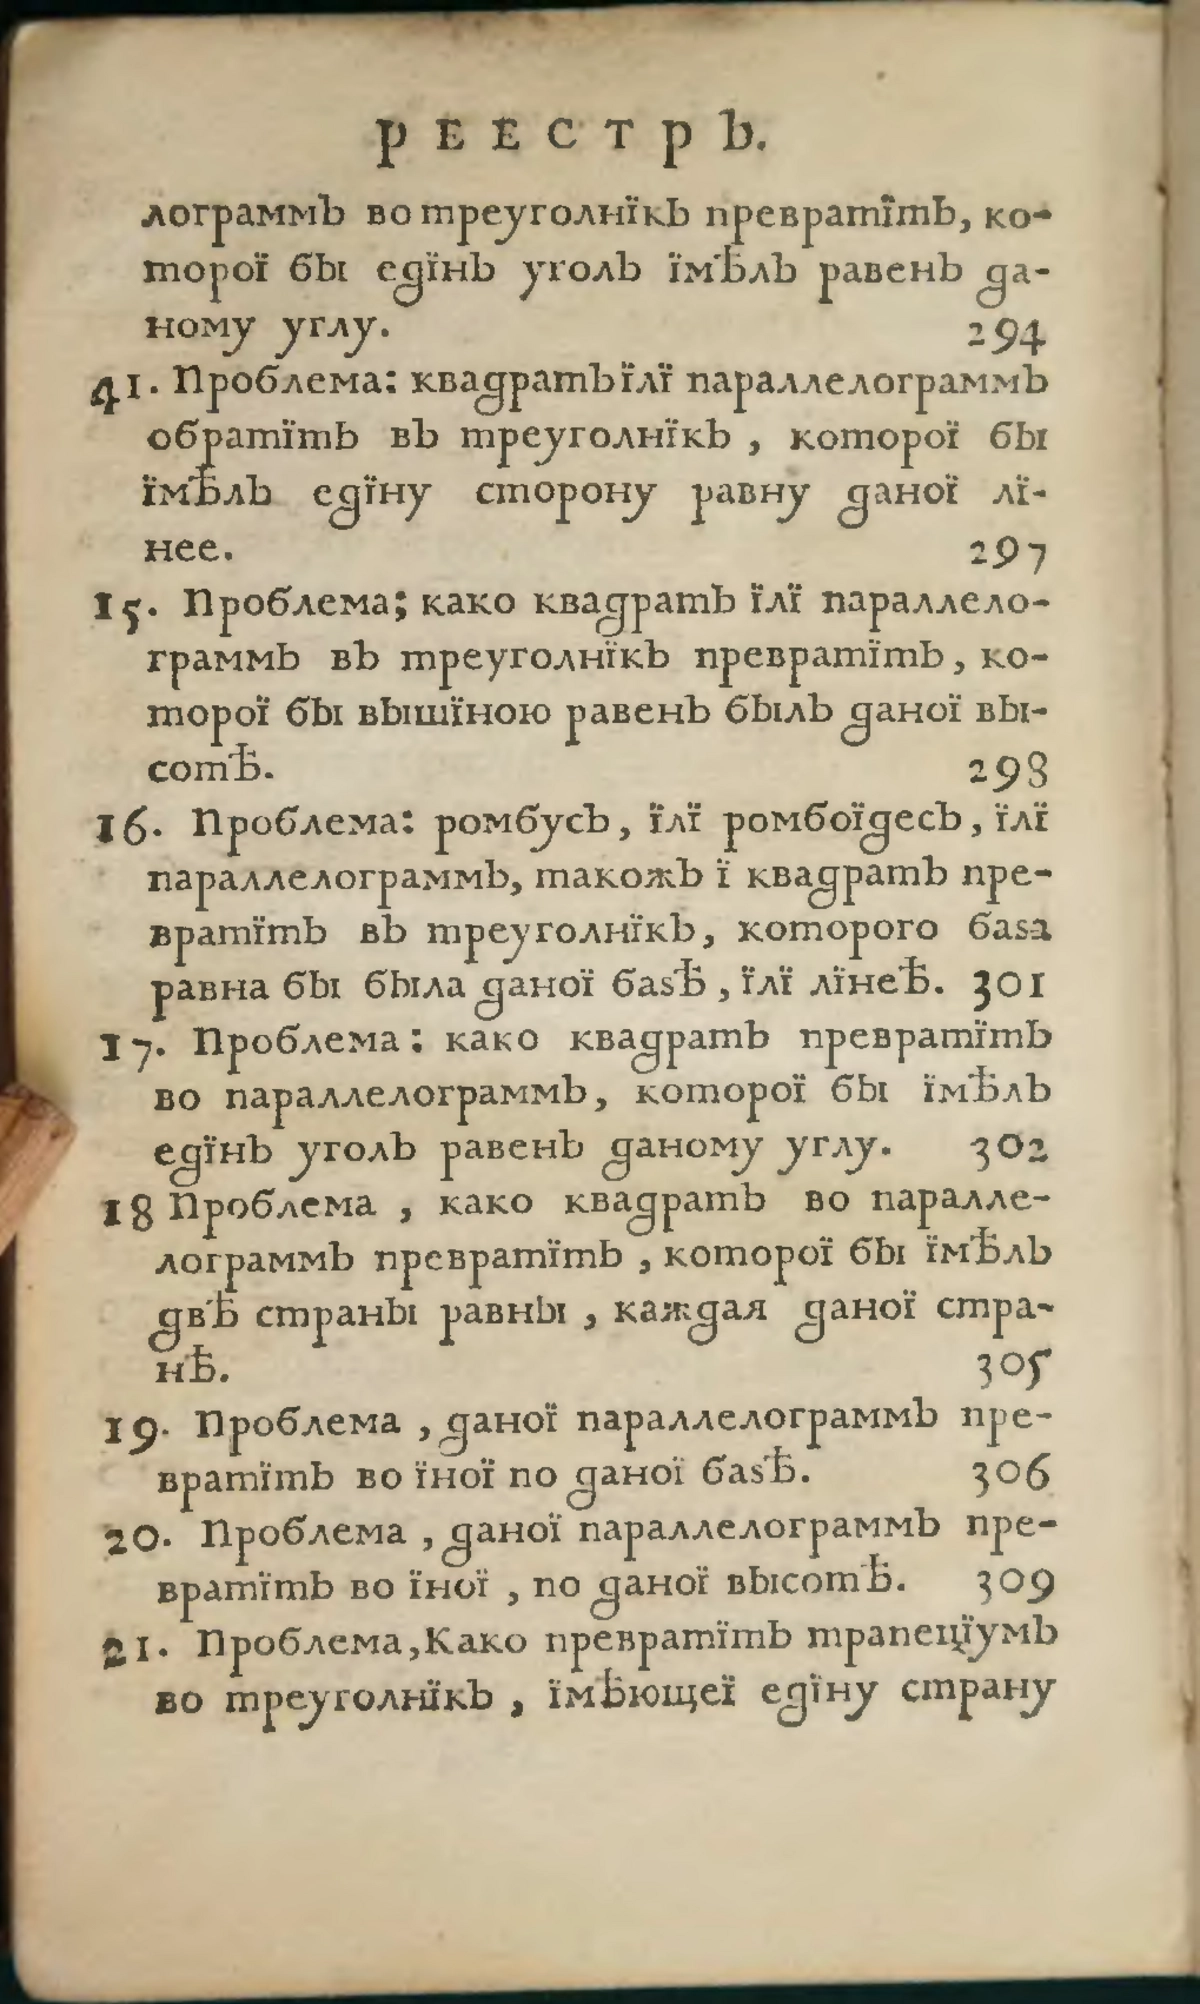 РЕЕСТРЪ.
лограммъ во треуголнїкъ превратїть, ко-
торої бы едїнъ уголъ їмѣлъ равенъ да-
ному углу. 294
41. Проблема: квадратъ їлї параллелограммъ
обратїть въ треуголнїкъ, которої бы
їмѣлъ едїну сторону равну даної лї-
нее. 297
15. Проблема; како квадратъ їлї параллело-
граммъ въ треуголнїкъ превратїть, ко-
торої бы вышїною равенъ былъ даної вы-
сотѣ. 298
16. Проблема: ромбусъ, їлї ромбоїдесъ, їлї
параллелограммъ, такожъ ї квадратъ пре-
вратїть въ треуголнїкъ, которого баѕа
равна бы была даної баѕѣ, їлї лїнеѣ. 301
17. Проблема: како квадратъ превратїть
во параллелограммъ, которої бы їмѣлъ
едїнъ уголъ равенъ даному углу. 302
18 Проблема, како квадратъ во паралле-
лограммъ превратїть, которої бы їмѣлъ
двѣ страны равны, каждая даної стра-
нѣ. 305
19. Проблема, даної параллелограммъ пре-
вратїть во їної по даної баѕѣ. 306
20. Проблема, даної параллелограммъ пре-
вратїть во їної, по даної высотѣ. 309
21. Проблема, Како превратїть трапецїумъ
во треуголнїкъ, їмѣющеї едїну страну